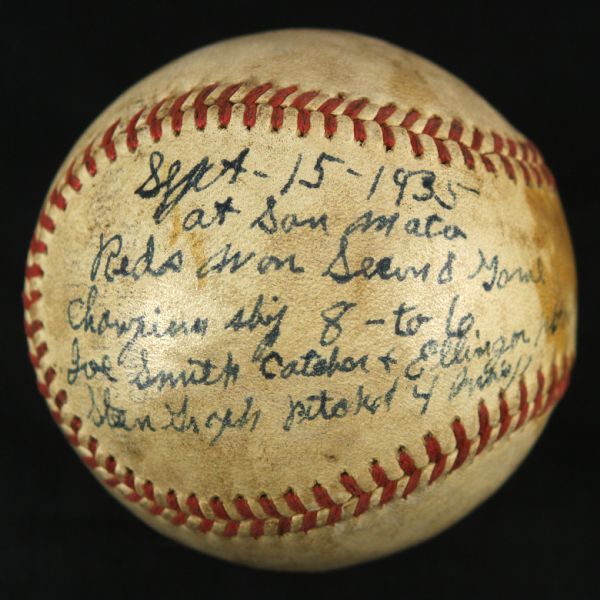 Sept - 15 - 1935
at San Mato
Reds Won Second Game
Champion ship 8 - to 6
Joe Smith Catcher + Ellingon
Stan Graph pitched 4